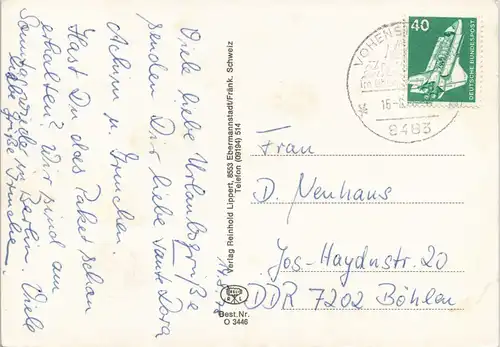 14.8.
Viele liebe Urlaubsgrüße
senden Dir liebe Tante Dora
Achim u. Truchen.
Hast Du das Paket schon
erhalten? Wir sind am
Sonntag wieder in Berlin. Viele
liebe Grüße Truchen.
Verlag Reinhold Lippert, 8553 Ebermannstadt/Fränk. Schweiz
Telefon (09194) 514
Best.Nr.
O 3446
VOHENS
16-8
8483
40
DEUTSCHE BUNDESPOST
Frau
D. Neuhaus
Jos-Haydnstr. 20
DDR 7202 Böhlen